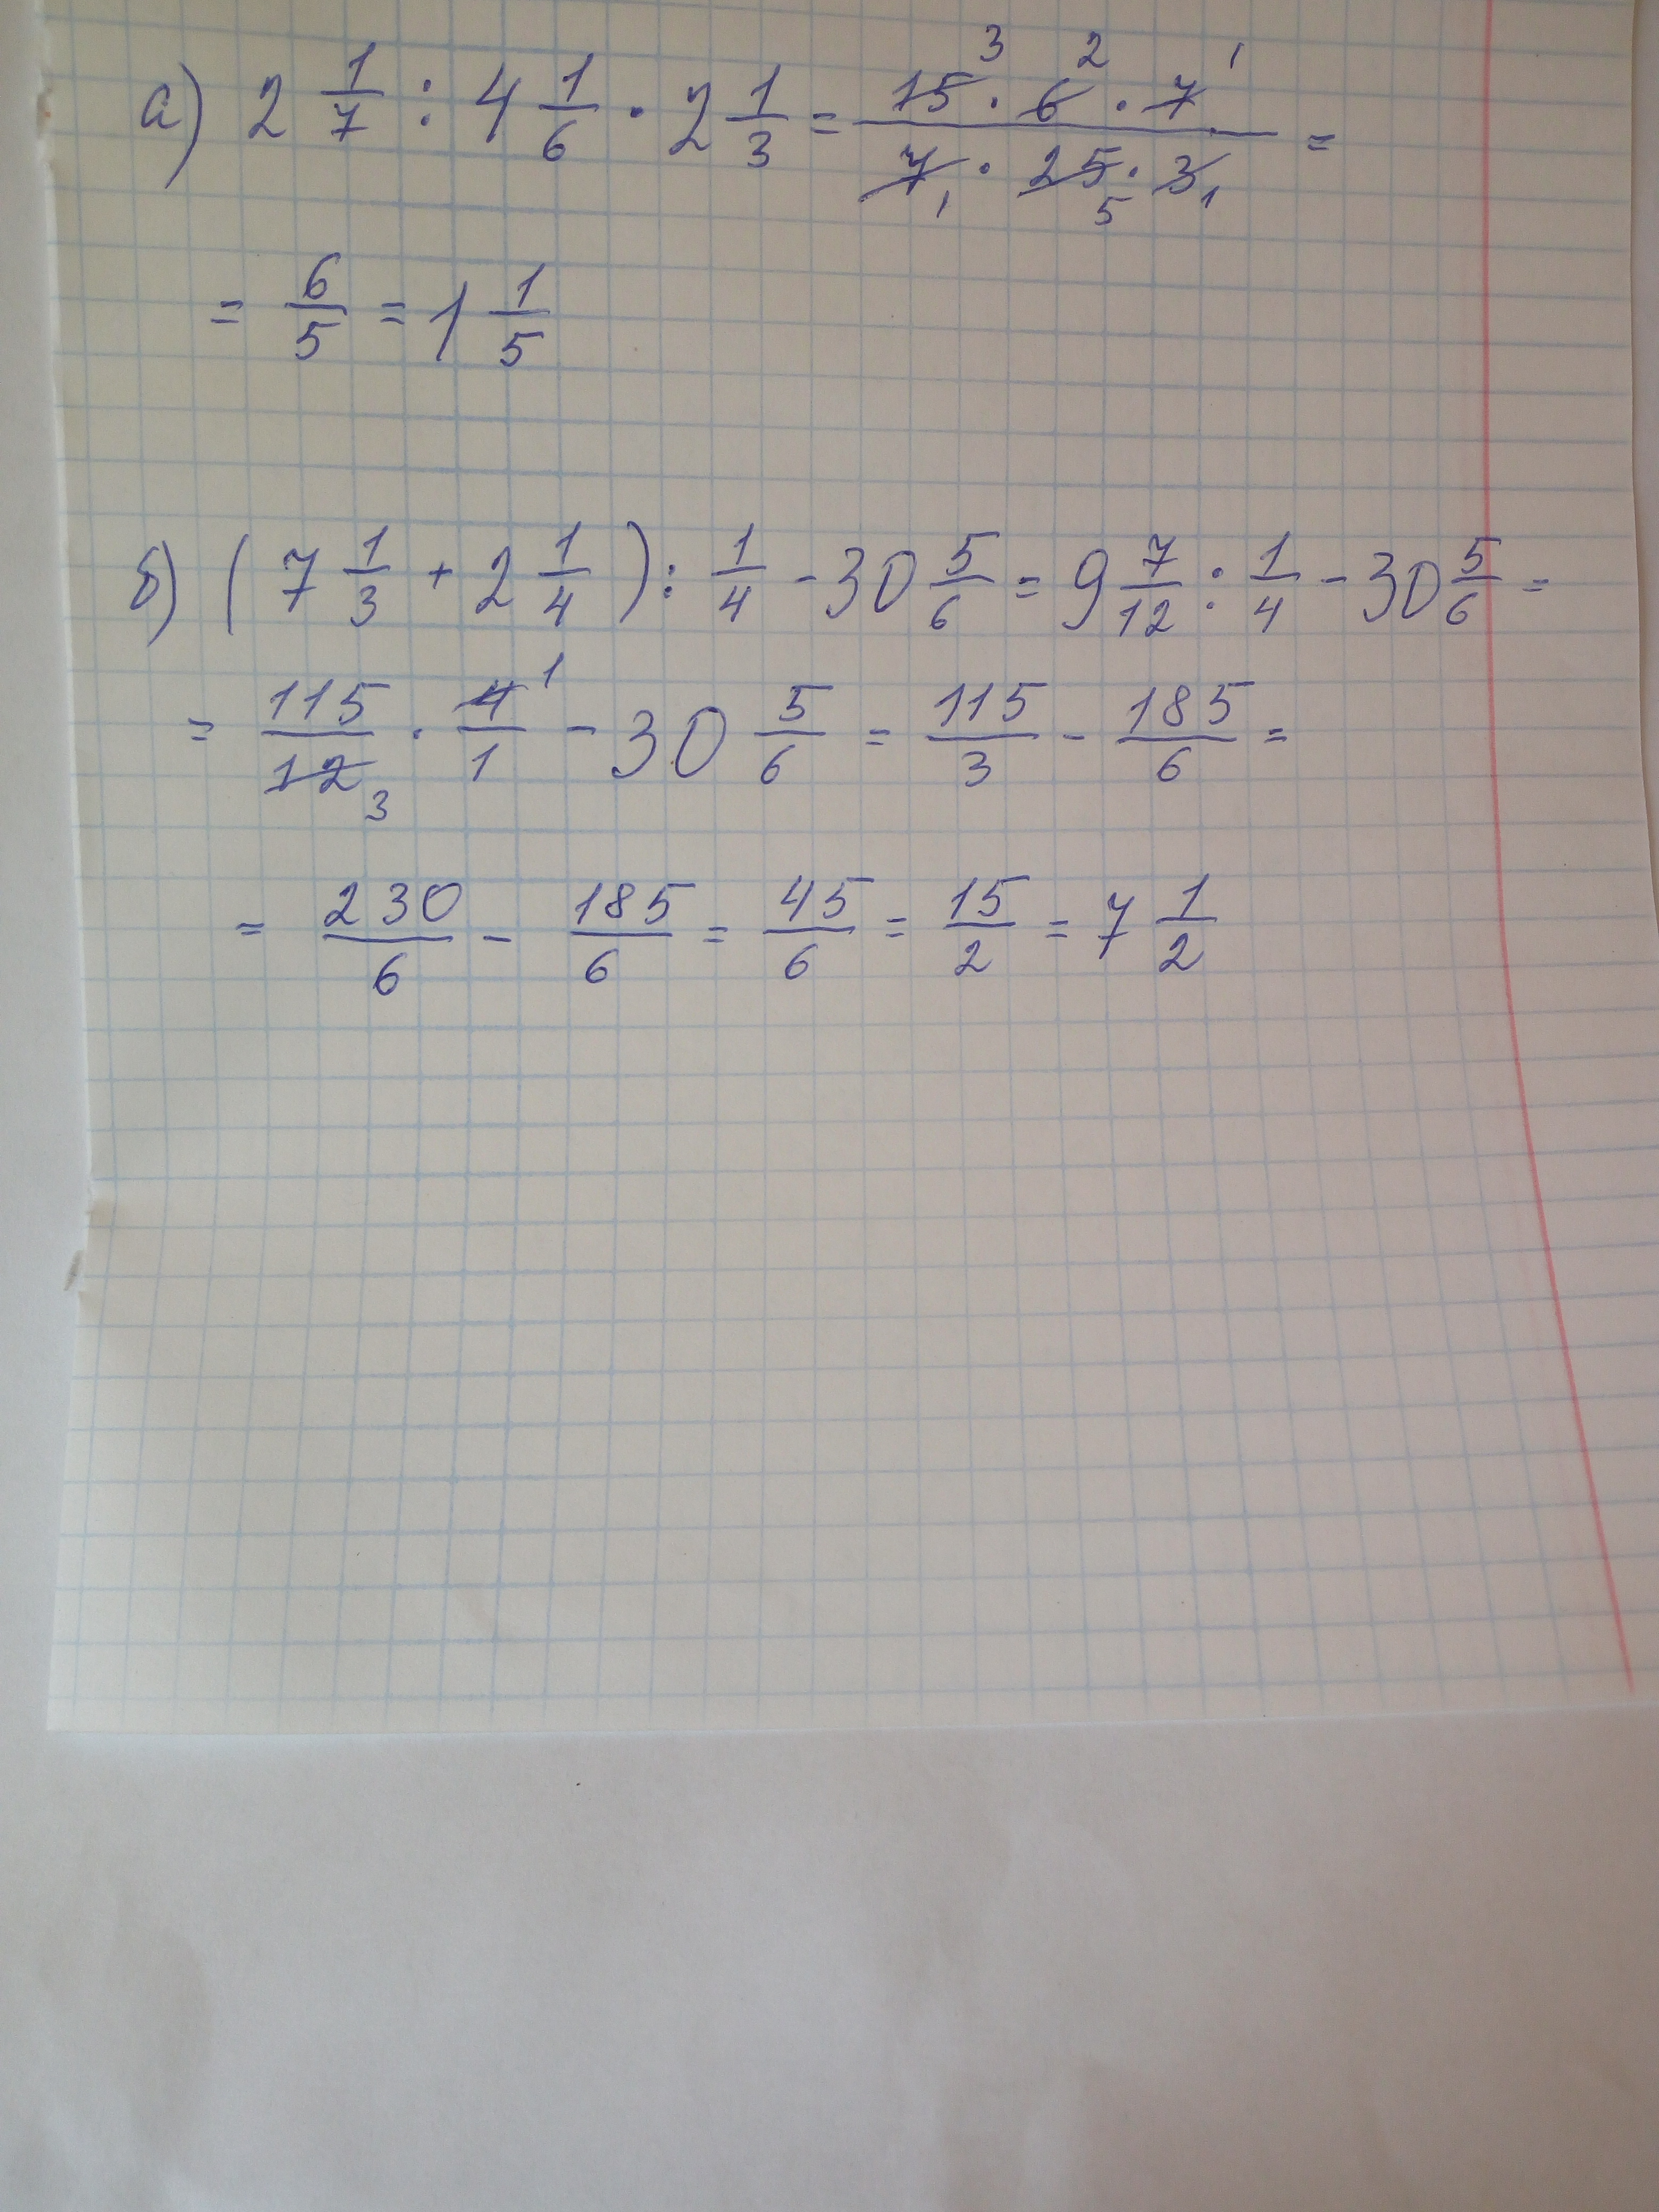 а) 2 1/7 : 4 1/6 · 2 1/3 = (15 3 · 6 2 · 7 1)/(7 1 · 25 5 · 3 1) =
= 6/5 = 1 1/5
б) (7 1/3 + 2 1/4) : 1/4 - 30 5/6 = 9 7/12 : 1/4 - 30 5/6 =
= 115/12 3 · 4 1/1 - 30 5/6 = 115/3 - 185/6 =
= 230/6 - 185/6 = 45/6 = 15/2 = 7 1/2